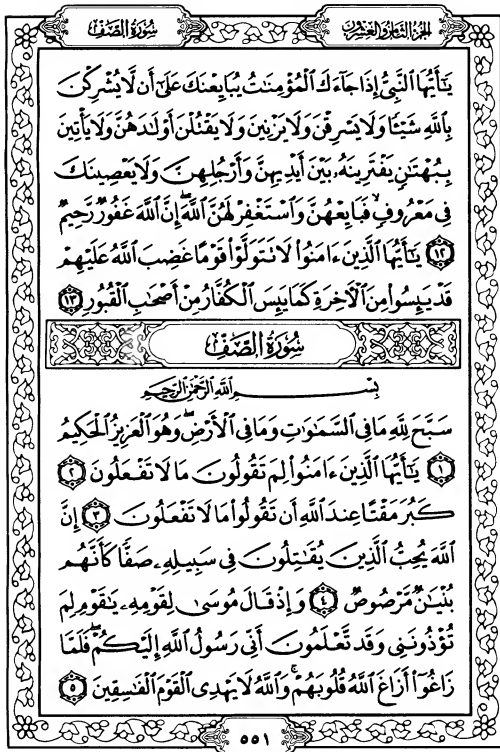 الجزء الثامن والعشرون
سورة الصف
يَٰٓأَيُّهَا ٱلنَّبِيُّ إِذَا جَآءَكَ ٱلْمُؤْمِنَٰتُ يُبَايِعْنَكَ عَلَىٰٓ أَن لَّا يُشْرِكْنَ
بِٱللَّهِ شَيْـًٔا وَلَا يَسْرِقْنَ وَلَا يَزْنِينَ وَلَا يَقْتُلْنَ أَوْلَٰدَهُنَّ وَلَا يَأْتِينَ
بِبُهْتَٰنٍ يَفْتَرِينَهُۥ بَيْنَ أَيْدِيهِنَّ وَأَرْجُلِهِنَّ وَلَا يَعْصِينَكَ
فِى مَعْرُوفٍ ۙ فَبَايِعْهُنَّ وَٱسْتَغْفِرْ لَهُنَّ ٱللَّهَ ۖ إِنَّ ٱللَّهَ غَفُورٌ رَّحِيمٌ
١٢ يَٰٓأَيُّهَا ٱلَّذِينَ ءَامَنُوا۟ لَا تَتَوَلَّوْا۟ قَوْمًا غَضِبَ ٱللَّهُ عَلَيْهِمْ
قَدْ يَئِسُوا۟ مِنَ ٱلْءَاخِرَةِ كَمَا يَئِسَ ٱلْكُفَّارُ مِنْ أَصْحَٰبِ ٱلْقُبُورِ ١٣
سُورَةُ الصَّفِّ
بِسْمِ ٱللَّهِ ٱلرَّحْمَٰنِ ٱلرَّحِيمِ
سَبَّحَ لِلَّهِ مَا فِى ٱلسَّمَٰوَٰتِ وَمَا فِى ٱلْأَرْضِ ۖ وَهُوَ ٱلْعَزِيزُ ٱلْحَكِيمُ
١ يَٰٓأَيُّهَا ٱلَّذِينَ ءَامَنُوا۟ لِمَ تَقُولُونَ مَا لَا تَفْعَلُونَ ٢
كَبُرَ مَقْتًا عِندَ ٱللَّهِ أَن تَقُولُوا۟ مَا لَا تَفْعَلُونَ ٣ إِنَّ
ٱللَّهَ يُحِبُّ ٱلَّذِينَ يُقَٰتِلُونَ فِى سَبِيلِهِۦ صَفًّا كَأَنَّهُم
بُنْيَٰنٌ مَّرْصُوصٌ ٤ وَإِذْ قَالَ مُوسَىٰ لِقَوْمِهِۦ يَٰقَوْمِ لِمَ
تُؤْذُونَنِى وَقَد تَّعْلَمُونَ أَنِّى رَسُولُ ٱللَّهِ إِلَيْكُمْ ۖ فَلَمَّا
زَاغُوٓا۟ أَزَاغَ ٱللَّهُ قُلُوبَهُمْ ۚ وَٱللَّهُ لَا يَهْدِى ٱلْقَوْمَ ٱلْفَٰسِقِينَ ٥
٥٥١